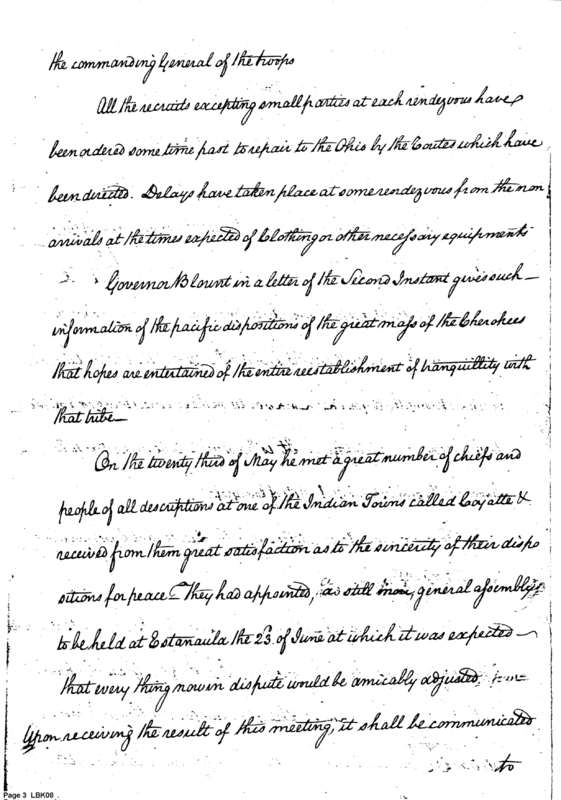 the commanding General of the troops
All the recruits excepting small parties at each rendezvous have
been ordered some time past to repair to the Ohio by the routes which have
been directed. Delays have taken place at some rendezvous from the non
arrivals at the times expected of Clothing or other necessary equipments
Governor Blount in a letter of the Second Instant gives such
information of the pacific dispositions of the great mass of the Cherokees
that hopes are entertained of the entire reestablishment of tranquillity with
that tribe—
On the twenty third of May he met a great number of chiefs and
people of all descriptions at one of the Indian Towns called Coyatte &
received from them great satisfaction as to the sincerity of their dispo
sitions for peace — They had appointed, a still more, general assembly
to be held at Estanaula the 23d. of June at which it was expected —
that every thing now in dispute would be amicably adjusted,
Upon receiving the result of this meeting, it shall be communicated
to
Page 3 LBK08